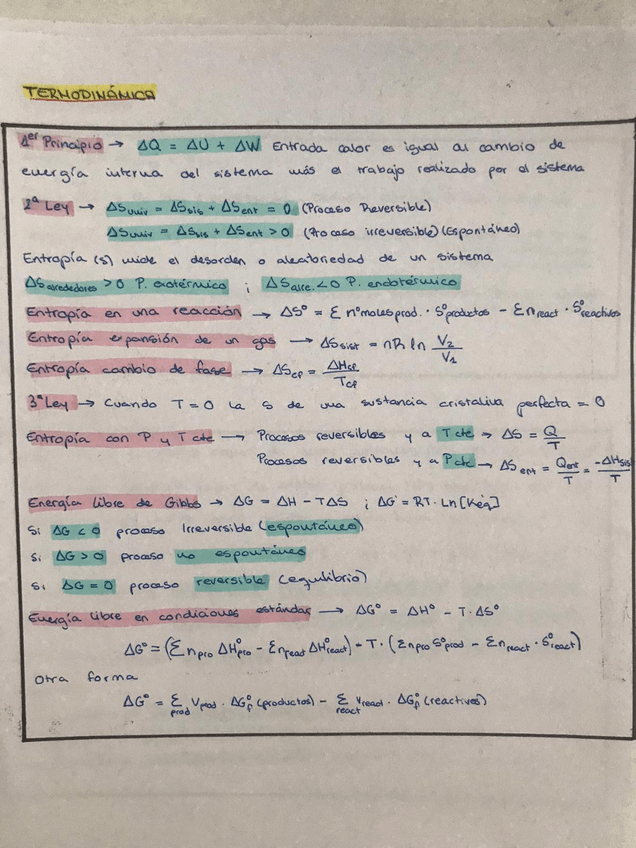 TERMODINÁMICA
1er Principio → ΔQ = ΔU + ΔW Entrada calor es igual al cambio de
energía interna del sistema más el trabajo realizado por el sistema
2ª Ley → ΔSuniv = ΔSsis + ΔSent = 0 (Proceso Reversible)
ΔSuniv = ΔSsis + ΔSent > 0 (Proceso irreversible) (Espontáneo)
Entropía (S) mide el desorden o aleatoriedad de un sistema
ΔSalrededores > 0 P. exotérmico ; ΔSalre. < 0 P. endotérmico
Entropía en una reacción → ΔS° = Σ nºmolesprod. · S°productos - Σnreact · S°reactivos
Entropía expansión de un gas → ΔSsist = nR ln V2/V1
Entropía cambio de fase → ΔScf = ΔHcf/Tcf
3ª Ley → Cuando T=0 la S de una sustancia cristalina perfecta = 0
Entropía con P y T cte → Procesos reversibles y a T cte → ΔS = Q/T
Procesos reversibles y a P cte → ΔSent = Qent/T = -ΔHsis/T
Energía Libre de Gibbs → ΔG = ΔH - TΔS ; ΔG = RT · Ln[Keq]
Si ΔG < 0 proceso Irreversible (espontáneo)
Si ΔG > 0 proceso no espontáneo
Si ΔG = 0 proceso reversible (equilibrio)
Energía Libre en condiciones estándar → ΔG° = ΔH° - T · ΔS°
ΔG° = (Σnpro ΔH°pro - Σnreact ΔH°react) - T · (Σnpro S°prod - Σnreact · S°react)
Otra forma
ΔG° = Σprod Vprod · ΔG°f (productos) - Σreact Vreact · ΔG°f (reactivos)